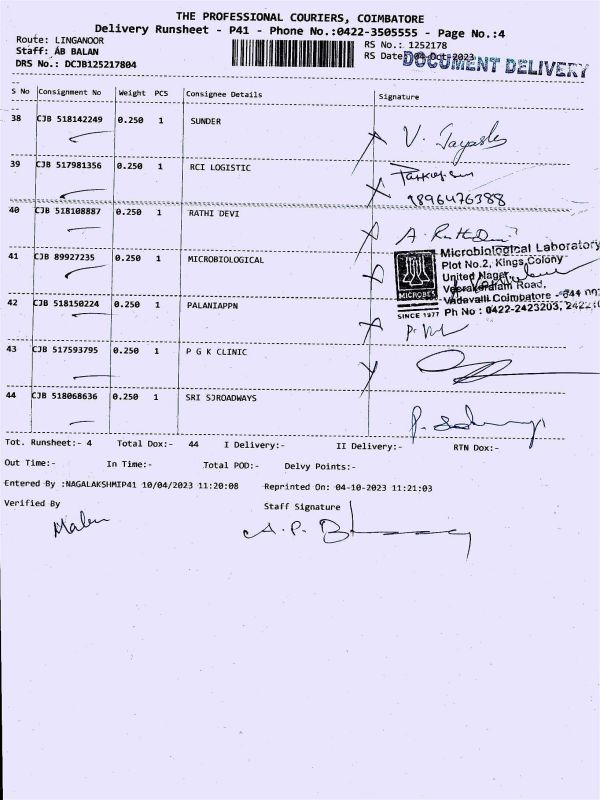 THE PROFESSIONAL COURIERS, COIMBATORE
Delivery Runsheet - P41 - Phone No.:0422-3505555 - Page No.:4
Route: LINGANOOR
RS No.: 1252178
Staff: AB BALAN
RS Date: 04-Oct-2023
DOCUMENT DELIVERY
DRS No.: DCJB125217804
S No Consignment No Weight PCS Consignee Details Signature
38 CJB 518142249 0.250 1 SUNDER
V. Jayashr
39 CJB 517981356 0.250 1 RCI LOGISTIC
9896476388
40 CJB 518108887 0.250 1 RATHI DEVI
A.
41 CJB 89927235 0.250 1 MICROBIOLOGICAL
MICROBES
SINCE 1977
Microbiological Laboratory
Plot No.2, Kings Colony
United Nagar,
Veerakeralam Road,
Vadavalli Coimbatore - 641 007
Ph No : 0422-2423203,
42 CJB 518150224 0.250 1 PALANIAPPN
43 CJB 517593795 0.250 1 P G K CLINIC
44 CJB 518068636 0.250 1 SRI SJROADWAYS
Tot. Runsheet:- 4 Total Dox:- 44 I Delivery:- II Delivery:- RTN Dox:-
Out Time:- In Time:- Total POD:- Delvy Points:-
Entered By :NAGALAKSHMIP41 10/04/2023 11:20:08 Reprinted On: 04-10-2023 11:21:03
Verified By Staff Signature
A. P.